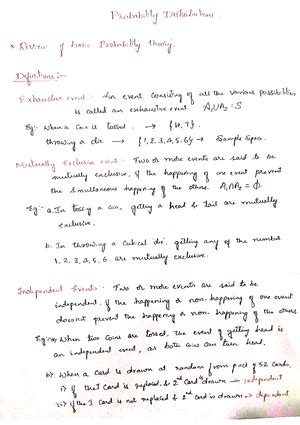 Probability Distributions.
* Review of basic Probability theory.
Definitions:-
Exhaustive event:- An event consisting of all the various possibilities
is called an exhaustive event A₁UA₂ = S
Eg:- When a Coin is tossed. → {H,T}.
throwing a die → {1,2,3,4,5,6} → Sample Space.
Mutually Exclusive event:- Two or more events are said to be
mutually exclusive, if the happening of one event prevent
the simultaneous happening of the others. A₁∩A₂ = Φ.
Eg:- a. In tossing a coin, getting a head & tail are mutually
exclusive.
b. In throwing a cubical die, getting any of the number
1, 2, 3, 4, 5, 6 are mutually exclusive.
Independent Events:- Two or more events are said to be
independent, if the happening or non-happening of one event
doesnot prevent the happening or non-happening of the others
Eg:- a) When two coins are tossed, the event of getting head is
an independent event, as both coins can turn head.
b) When a card is drawn at random from pack of 52 cards,
i) if the I card is replaced & 2nd card drawn → independent
ii) if the I card is not replaced & 2nd card is drawn → dependent.